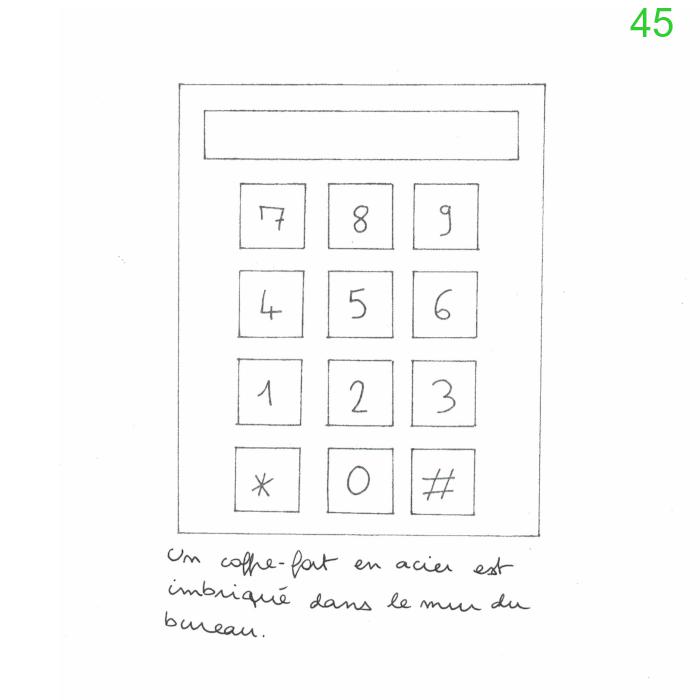 45
7 8 9
4 5 6
1 2 3
* 0 #
Un coffre-fort en acier est
imbriqué dans le mur du
bureau.